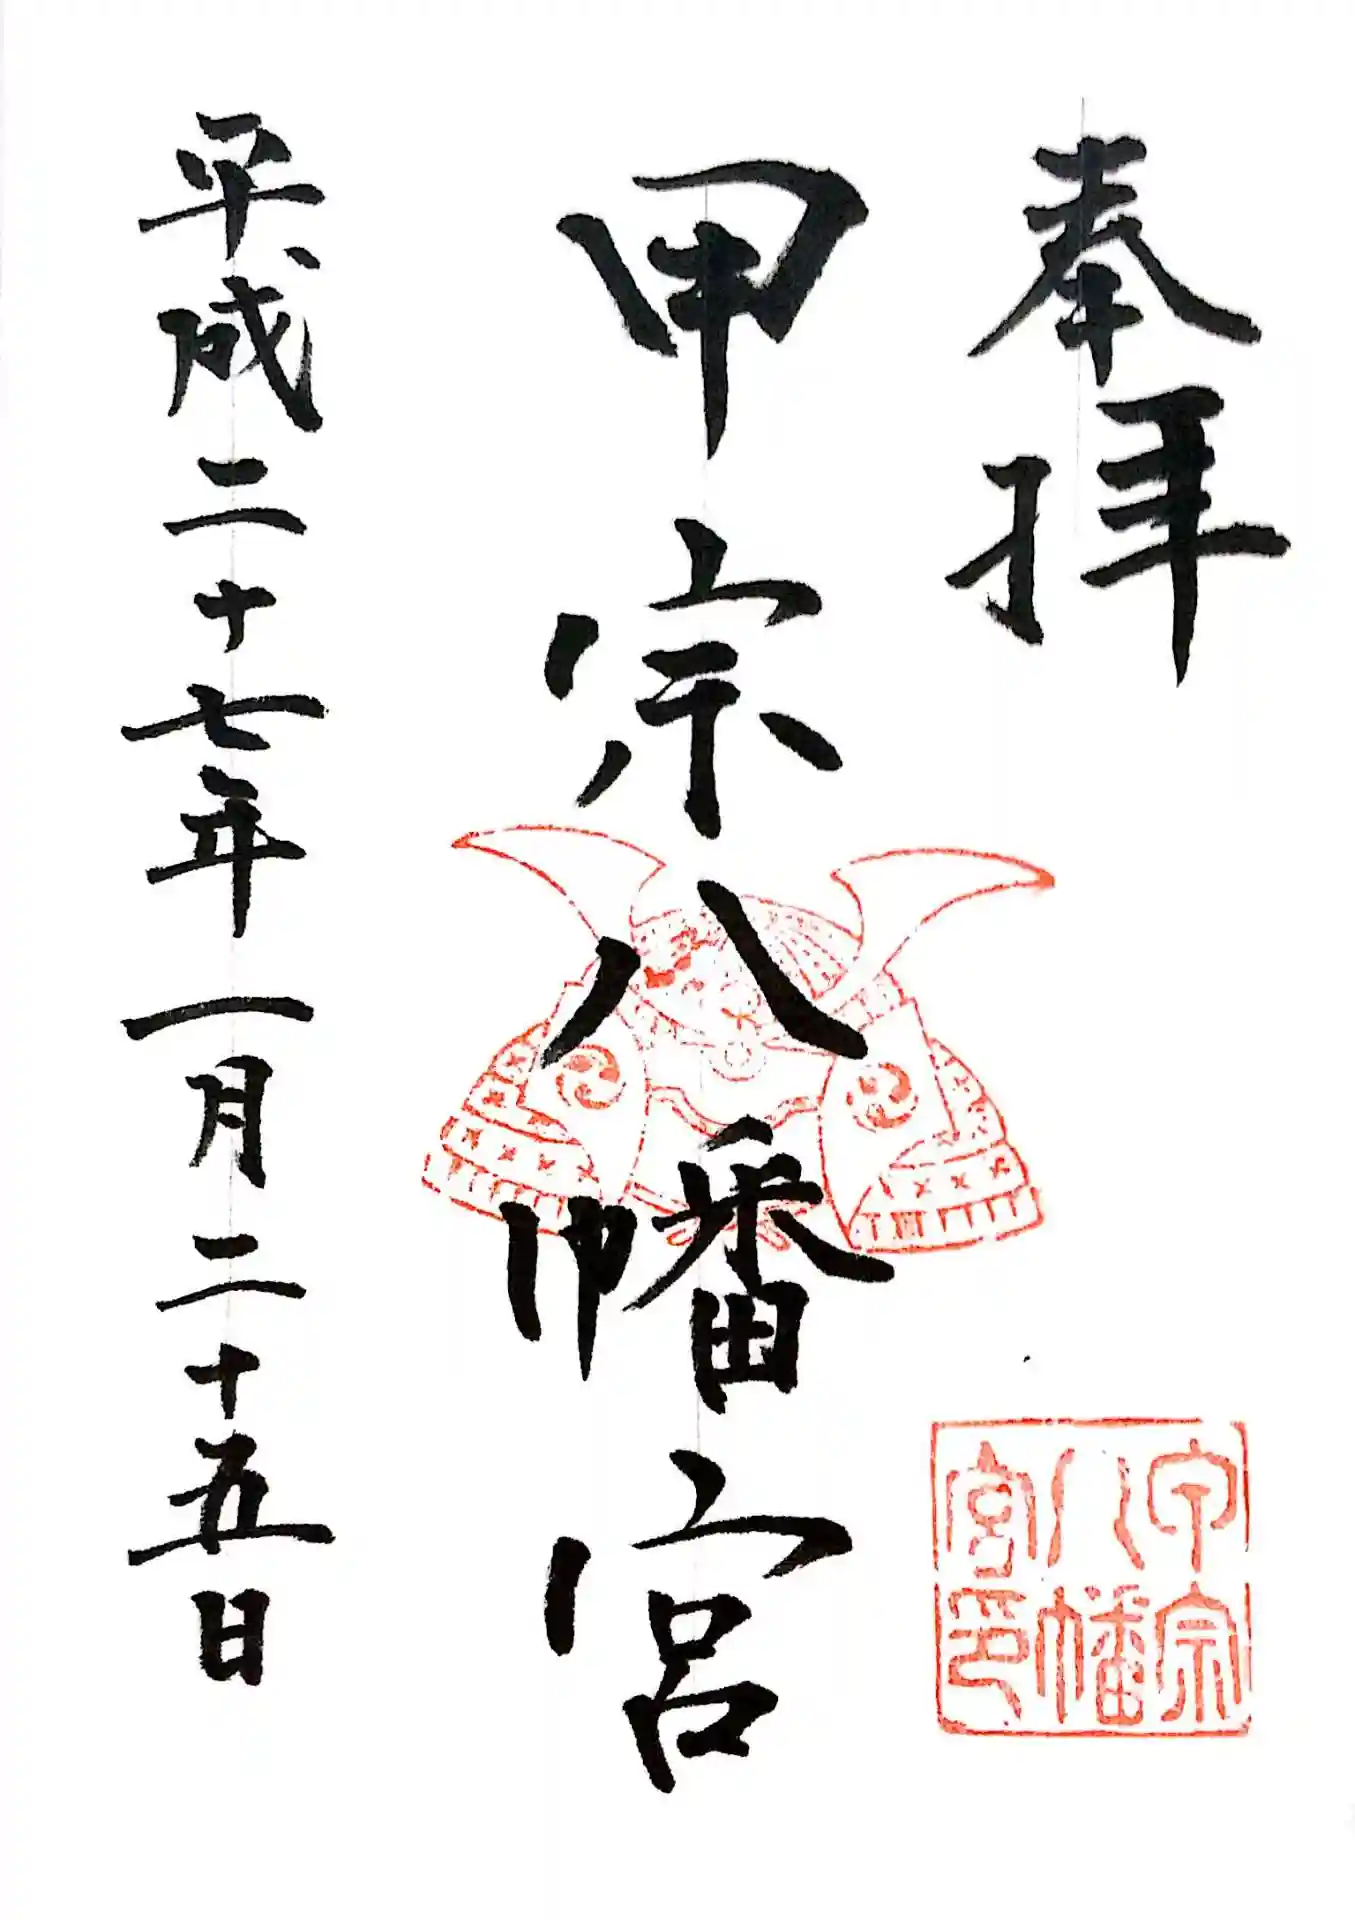 奉拝
甲宗八幡宮
平成二十七年一月二十五日
甲宗
八幡
宮印